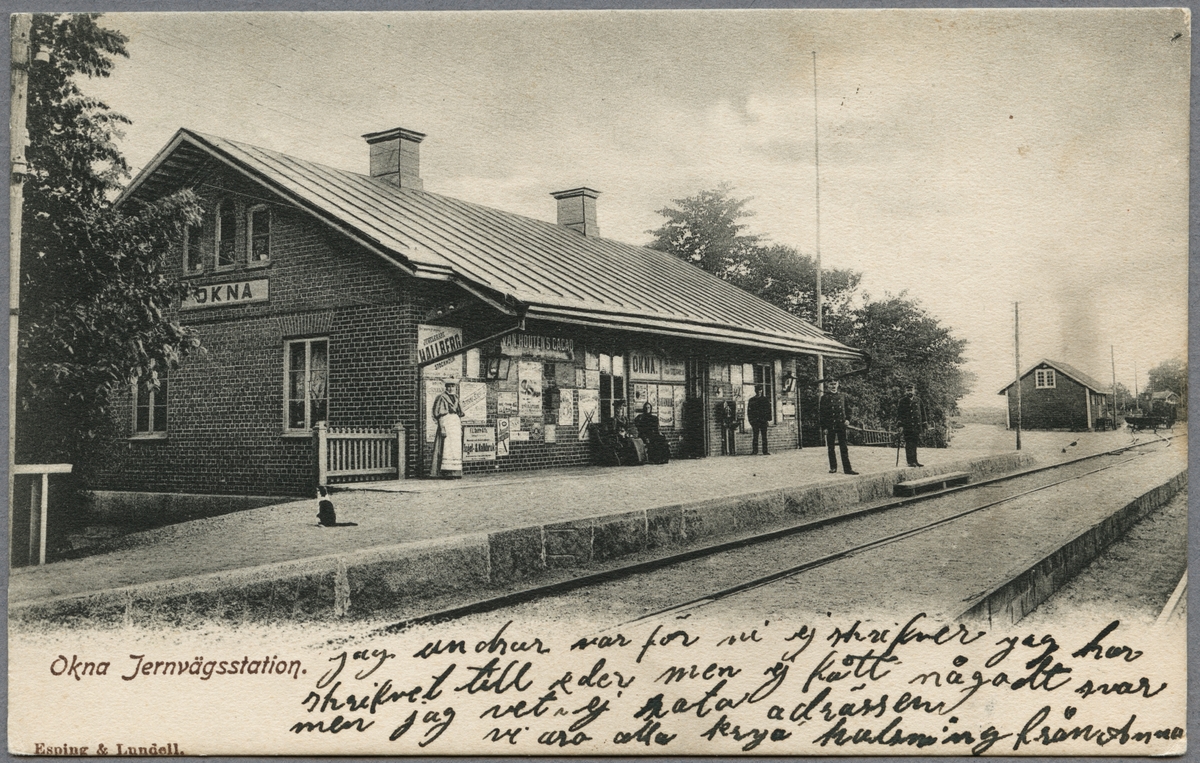 OKNA
HALLBERG
VAN HOUTENS CACAO
OKNA.
Okna Jernvägsstation.
jag undrar var för ni ej skrifver jag har
skrifvet till eder men ej fått någodt svar
men jag vet ej rata adrässen
vi äro alla krya halsning från Anna
Esping & Lundell.